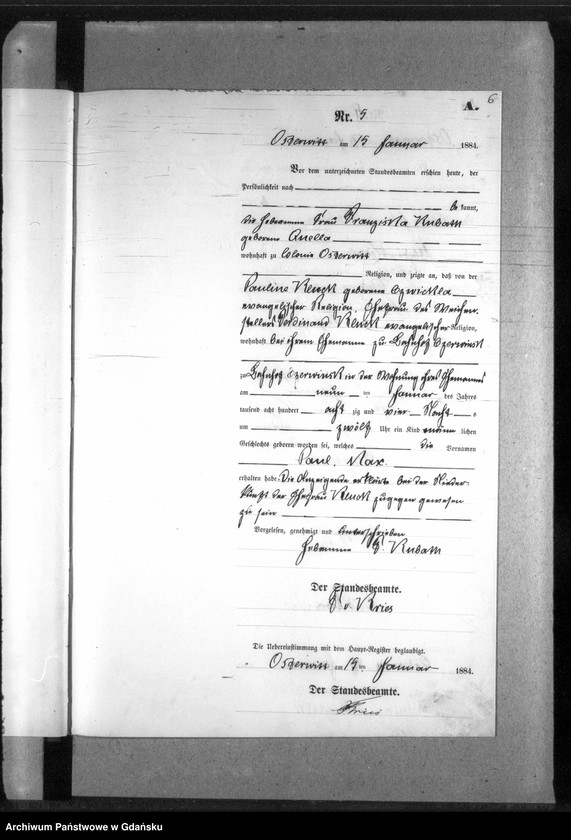 A.
6
Nr. 5
Osterwitt am 15 Januar 1884.
Vor dem unterzeichneten Standesbeamten erschien heute, der
Persönlichkeit nach
bekannt,
die Hebamme Frau Franziska Kubath
geborene Quella
wohnhaft zu Colonie Osterwitt
Religion, und zeigte an, daß von der
Pauline Renck geborene Czwickla
evangelischer Religion, Ehefrau des Weichen-
stellers Ferdinand Renck evangelischer Religion,
wohnhaft bei ihrem Ehemanne zu Bahnhof Czerwinsk
zu Bahnhof Czerwinsk in der Wohnung ihres Ehemannes
am neun ten Januar des Jahres
tausend acht hundert acht zig und vier Nacht s
um zwölf Uhr ein Kind männ lichen
Geschlechts geboren worden sei, welches die Vornamen
Paul, Max.
erhalten habe. Die Anzeigende erklärte bei der Nieder-
kunft der Ehefrau Renck zugegen gewesen
zu sein
Vorgelesen, genehmigt und unterschrieben
Hebamme F. Kubath
Der Standesbeamte.
v. Kries
Die Uebereinstimmung mit dem Haupt-Register beglaubigt.
Osterwitt am 15 ten Januar 1884.
Der Standesbeamte.
Kries
Archiwum Państwowe w Gdańsku